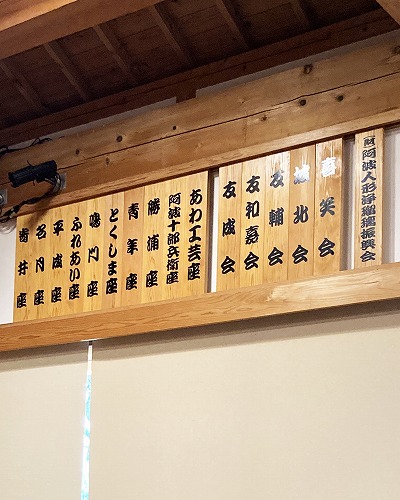 阿波人形浄瑠璃振興会
喜笑会
城北会
友輔会
友和嘉会
友成会
あわ工芸座
阿波十郎兵衛座
勝浦座
青年座
とくしま座
鳴門座
ふれあい座
平成座
名月座
寄井座